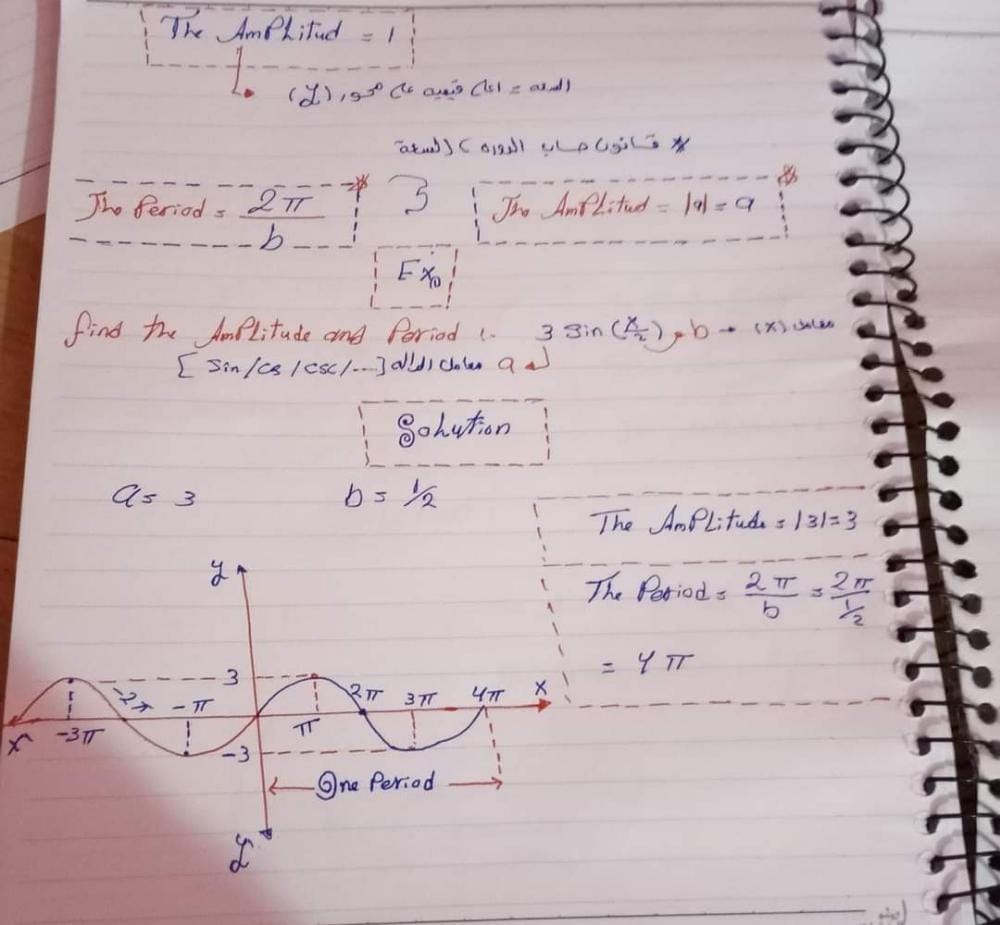 The AmPlitud = 1
السعه = اعلى قيميه على محور (y)
* قانون حساب الدوره و السعة
The Period = 2π/b
The AmPlitud = |a| = a
Ex:
find the AmPlitude and Period :- 3 sin (x/2) b → معامل (x)
a معامل الداله [sin/cs/csc/...]
Solution
a = 3 b = 1/2
The AmPLitude = |3| = 3
The Period = 2π/b = 2π/½
= 4π
y
3
-3π -2π -π π 2π 3π 4π x
x'
-3
One Period
y'